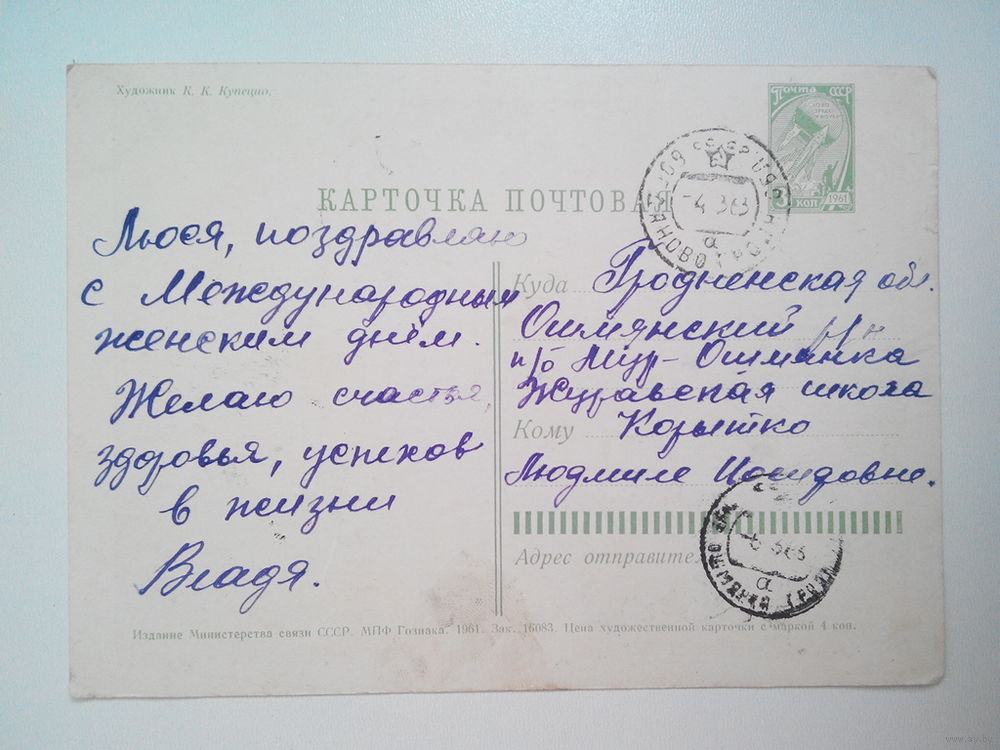 Художник К. К. Купецио.
Почта СССР
3 КОП 1961
КАРТОЧКА ПОЧТОВАЯ
-4 363
а
Люся, поздравляю
с Международным
женским днём.
Желаю счастья,
здоровья, успехов
в жизни
Владя.
Куда Гродненская обл.
Ошмянский р/н
п/о Мур-Ошмянка
Журавская школа
Кому Корытко
Людмиле Иосифовне.
-6 363
а
Адрес отправител
Издание Министерства связи СССР. МПФ Гознака. 1961. Зак. 16083. Цена художественной карточки с маркой 4 коп.